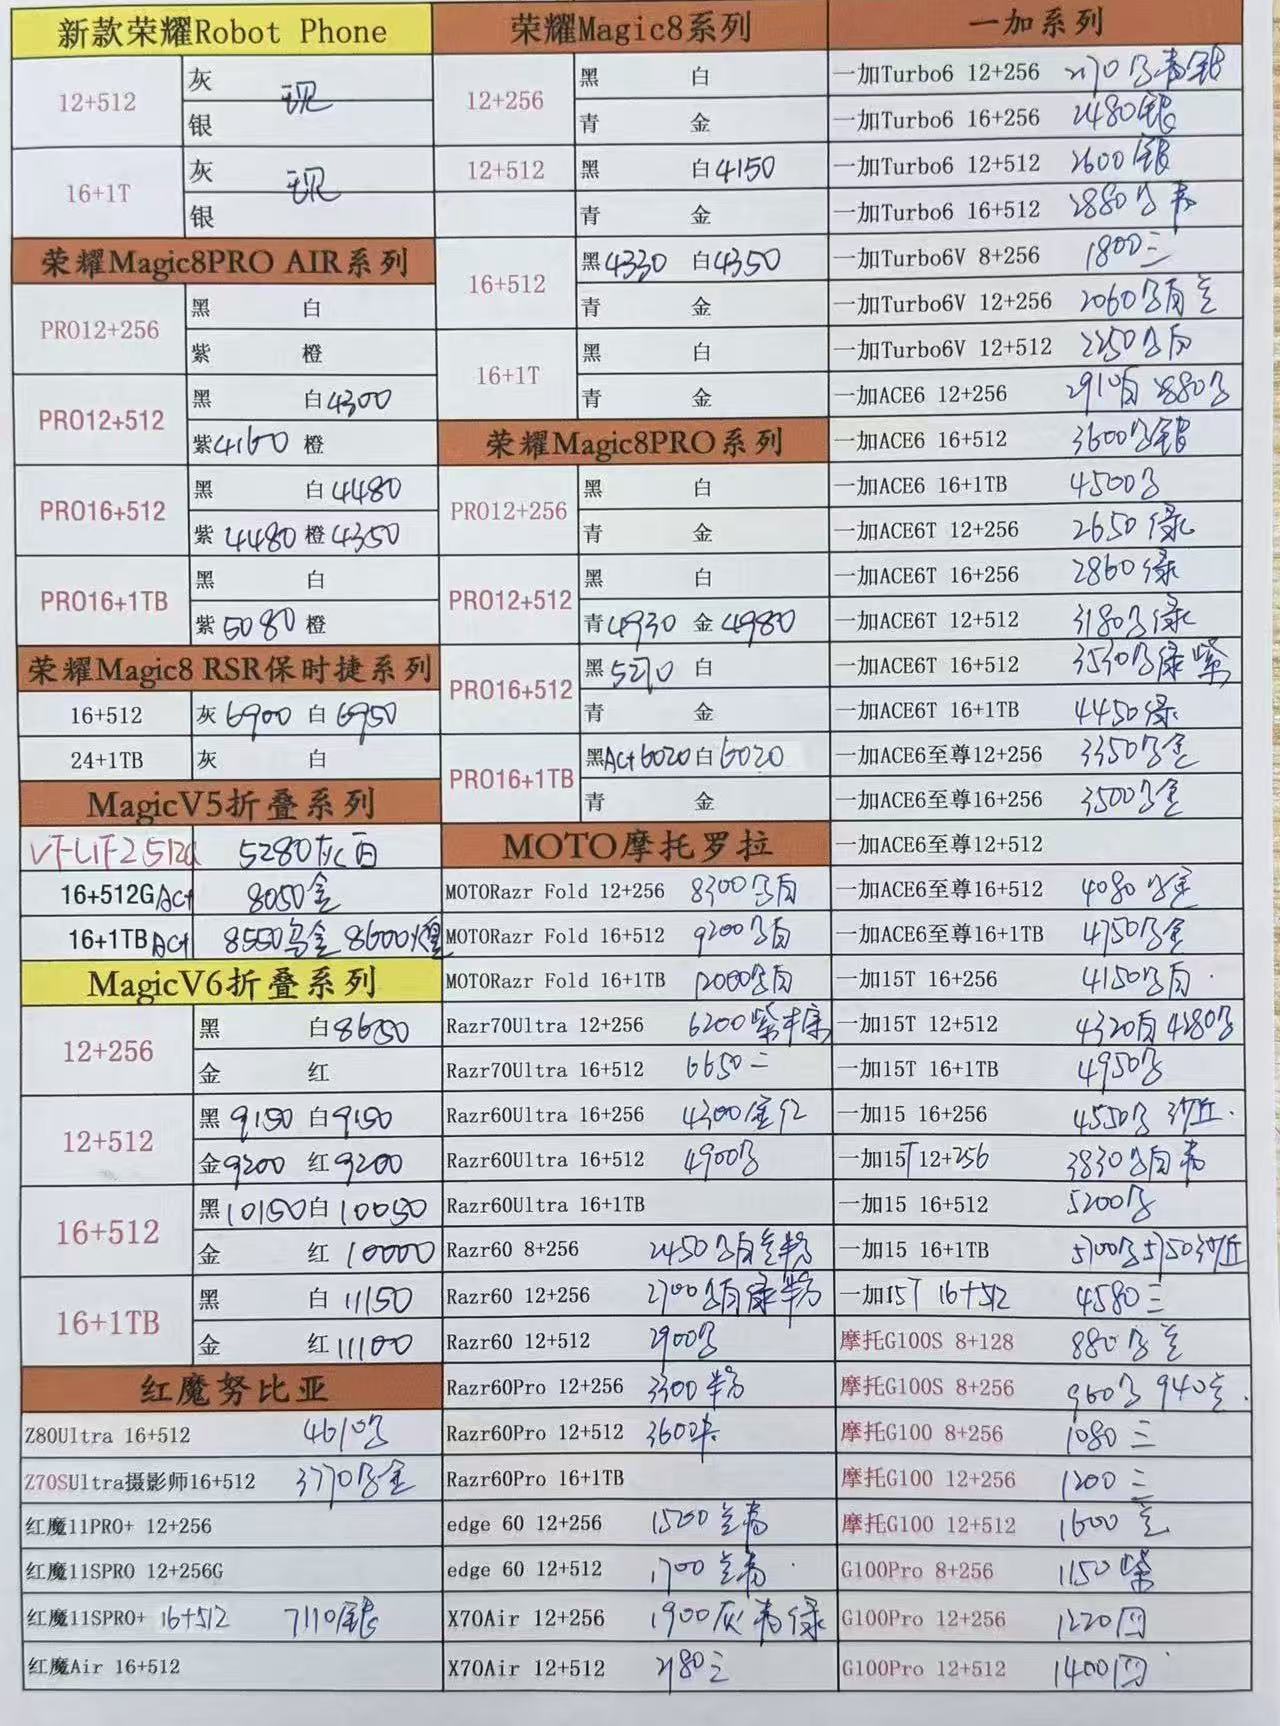 新款荣耀Robot Phone
12+512 灰 现
银
16+1T 灰 现
银
荣耀Magic8PRO AIR系列
PRO12+256 黑 白
紫 橙
PRO12+512 黑 白4300
紫4160 橙
PRO16+512 黑 白4480
紫4480 橙4350
PRO16+1TB 黑 白
紫5080 橙
荣耀Magic8 RSR保时捷系列
16+512 灰6900 白6950
24+1TB 灰 白
MagicV5折叠系列
5280灰白
16+512G Act 8050金
16+1TB Act 8550乌金 8600
MagicV6折叠系列
12+256 黑 白8650
金 红
12+512 黑9150 白9150
金9200 红9200
16+512 黑10150 白10050
金 红10000
16+1TB 黑 白11150
金 红11100
红魔努比亚
Z80Ultra 16+512 4610
Z70SUltra摄影师16+512 3770
红魔11PRO+ 12+256
红魔11SPRO 12+256G
红魔11SPRO+ 16+512 7110银
红魔Air 16+512
荣耀Magic8系列
12+256 黑 白
青 金
12+512 黑 白4150
青 金
16+512 黑4330 白4350
青 金
16+1T 黑 白
青 金
荣耀Magic8PRO系列
PRO12+256 黑 白
青 金
PRO12+512 黑 白
青4930 金4980
PRO16+512 黑5270 白
青 金
PRO16+1TB 黑Act6020 白6020
青 金
MOTO摩托罗拉
MOTORazr Fold 12+256 8300
MOTORazr Fold 16+512 9200
MOTORazr Fold 16+1TB 12000
Razr70Ultra 12+256 6200紫
Razr70Ultra 16+512 6650二
Razr60Ultra 16+256 4300金红
Razr60Ultra 16+512 4900
Razr60Ultra 16+1TB
Razr60 8+256 2450
Razr60 12+256 2700
Razr60 12+512 2900
Razr60Pro 12+256 3300
Razr60Pro 12+512 3600
Razr60Pro 16+1TB
edge 60 12+256 1500
edge 60 12+512 1700
X70Air 12+256 1900灰青绿
X70Air 12+512 2180三
一加系列
一加Turbo6 12+256 2170
一加Turbo6 16+256 2480银
一加Turbo6 12+512 2600银
一加Turbo6 16+512 2880
一加Turbo6V 8+256 1800三
一加Turbo6V 12+256 2060
一加Turbo6V 12+512 2250
一加ACE6 12+256 2910白 2880
一加ACE6 16+512 3600
一加ACE6 16+1TB 4500
一加ACE6T 12+256 2650绿
一加ACE6T 16+256 2860绿
一加ACE6T 12+512 3180
一加ACE6T 16+512 3530
一加ACE6T 16+1TB 4450绿
一加ACE6至尊12+256 3350
一加ACE6至尊16+256 3500
一加ACE6至尊12+512
一加ACE6至尊16+512 4080
一加ACE6至尊16+1TB 4750
一加15T 16+256 4150
一加15T 12+512 4320白 4280
一加15T 16+1TB 4950
一加15 16+256 4550 沙丘
一加15T 12+256 3830
一加15 16+512 5200
一加15 16+1TB 5700 5750沙丘
一加15T 16+512 4580三
摩托G100S 8+128 880
摩托G100S 8+256 960 940
摩托G100 8+256 1080三
摩托G100 12+256 1200三
摩托G100 12+512 1600
G100Pro 8+256 1150紫
G100Pro 12+256 1220四
G100Pro 12+512 1400四